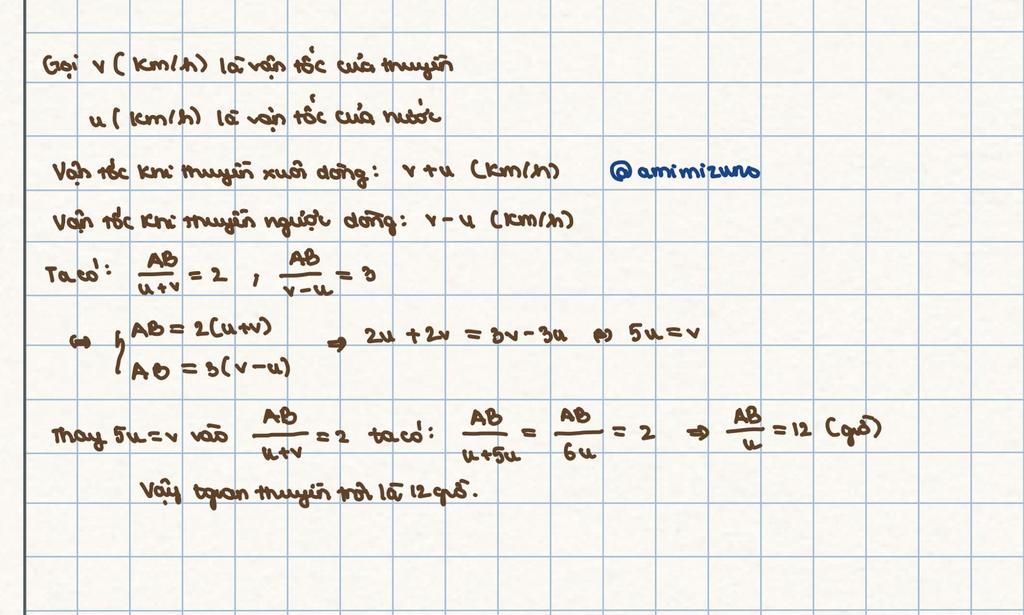 Gọi v (km/h) là vận tốc của thuyền
u (km/h) là vận tốc của nước
Vận tốc khi thuyền xuôi dòng: v+u (km/h) @amimizuno
Vận tốc khi thuyền ngược dòng: v-u (km/h)
Ta có: AB/(u+v) = 2 , AB/(v-u) = 3
⇔ { AB = 2(u+v) ⇒ 2u + 2v = 3v - 3u ⇔ 5u = v
AB = 3(v-u)
Thay 5u=v vào AB/(u+v) = 2 ta có: AB/(u+5u) = AB/6u = 2 ⇒ AB/u = 12 (giờ)
Vậy tgian thuyền trôi là 12 giờ.